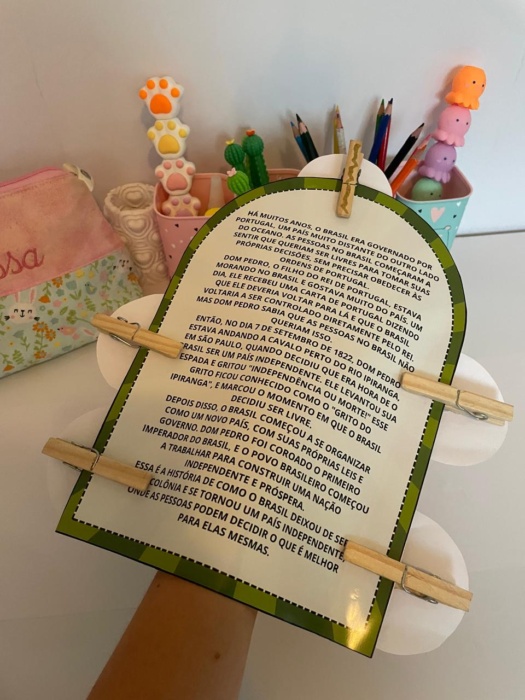 HÁ MUITOS ANOS, O BRASIL ERA GOVERNADO POR
PORTUGAL, UM PAÍS MUITO DISTANTE DO OUTRO LADO
DO OCEANO. AS PESSOAS NO BRASIL COMEÇARAM A
SENTIR QUE QUERIAM SER LIVRES PARA TOMAR SUAS
PRÓPRIAS DECISÕES, SEM PRECISAR OBEDECER ÀS
ORDENS DE PORTUGAL.
DOM PEDRO, O FILHO DO REI DE PORTUGAL, ESTAVA
MORANDO NO BRASIL E GOSTAVA MUITO DO PAÍS. UM
DIA, ELE RECEBEU UMA CARTA DE PORTUGAL DIZENDO
QUE ELE DEVERIA VOLTAR PARA LÁ E QUE O BRASIL
VOLTARIA A SER CONTROLADO DIRETAMENTE PELO REI.
MAS DOM PEDRO SABIA QUE AS PESSOAS NO BRASIL NÃO
QUERIAM ISSO.
ENTÃO, NO DIA 7 DE SETEMBRO DE 1822, DOM PEDRO
ESTAVA ANDANDO A CAVALO PERTO DO RIO IPIRANGA,
EM SÃO PAULO, QUANDO DECIDIU QUE ERA HORA DE O
BRASIL SER UM PAÍS INDEPENDENTE. ELE LEVANTOU SUA
ESPADA E GRITOU "INDEPENDÊNCIA OU MORTE!" ESSE
GRITO FICOU CONHECIDO COMO O "GRITO DO
IPIRANGA", E MARCOU O MOMENTO EM QUE O BRASIL
DECIDIU SER LIVRE.
DEPOIS DISSO, O BRASIL COMEÇOU A SE ORGANIZAR
COMO UM NOVO PAÍS, COM SUAS PRÓPRIAS LEIS E
GOVERNO. DOM PEDRO FOI COROADO O PRIMEIRO
IMPERADOR DO BRASIL, E O POVO BRASILEIRO COMEÇOU
A TRABALHAR PARA CONSTRUIR UMA NAÇÃO
INDEPENDENTE E PRÓSPERA.
ESSA É A HISTÓRIA DE COMO O BRASIL DEIXOU DE SER
COLÔNIA E SE TORNOU UM PAÍS INDEPENDENTE,
ONDE AS PESSOAS PODEM DECIDIR O QUE É MELHOR
PARA ELAS MESMAS.
ssa